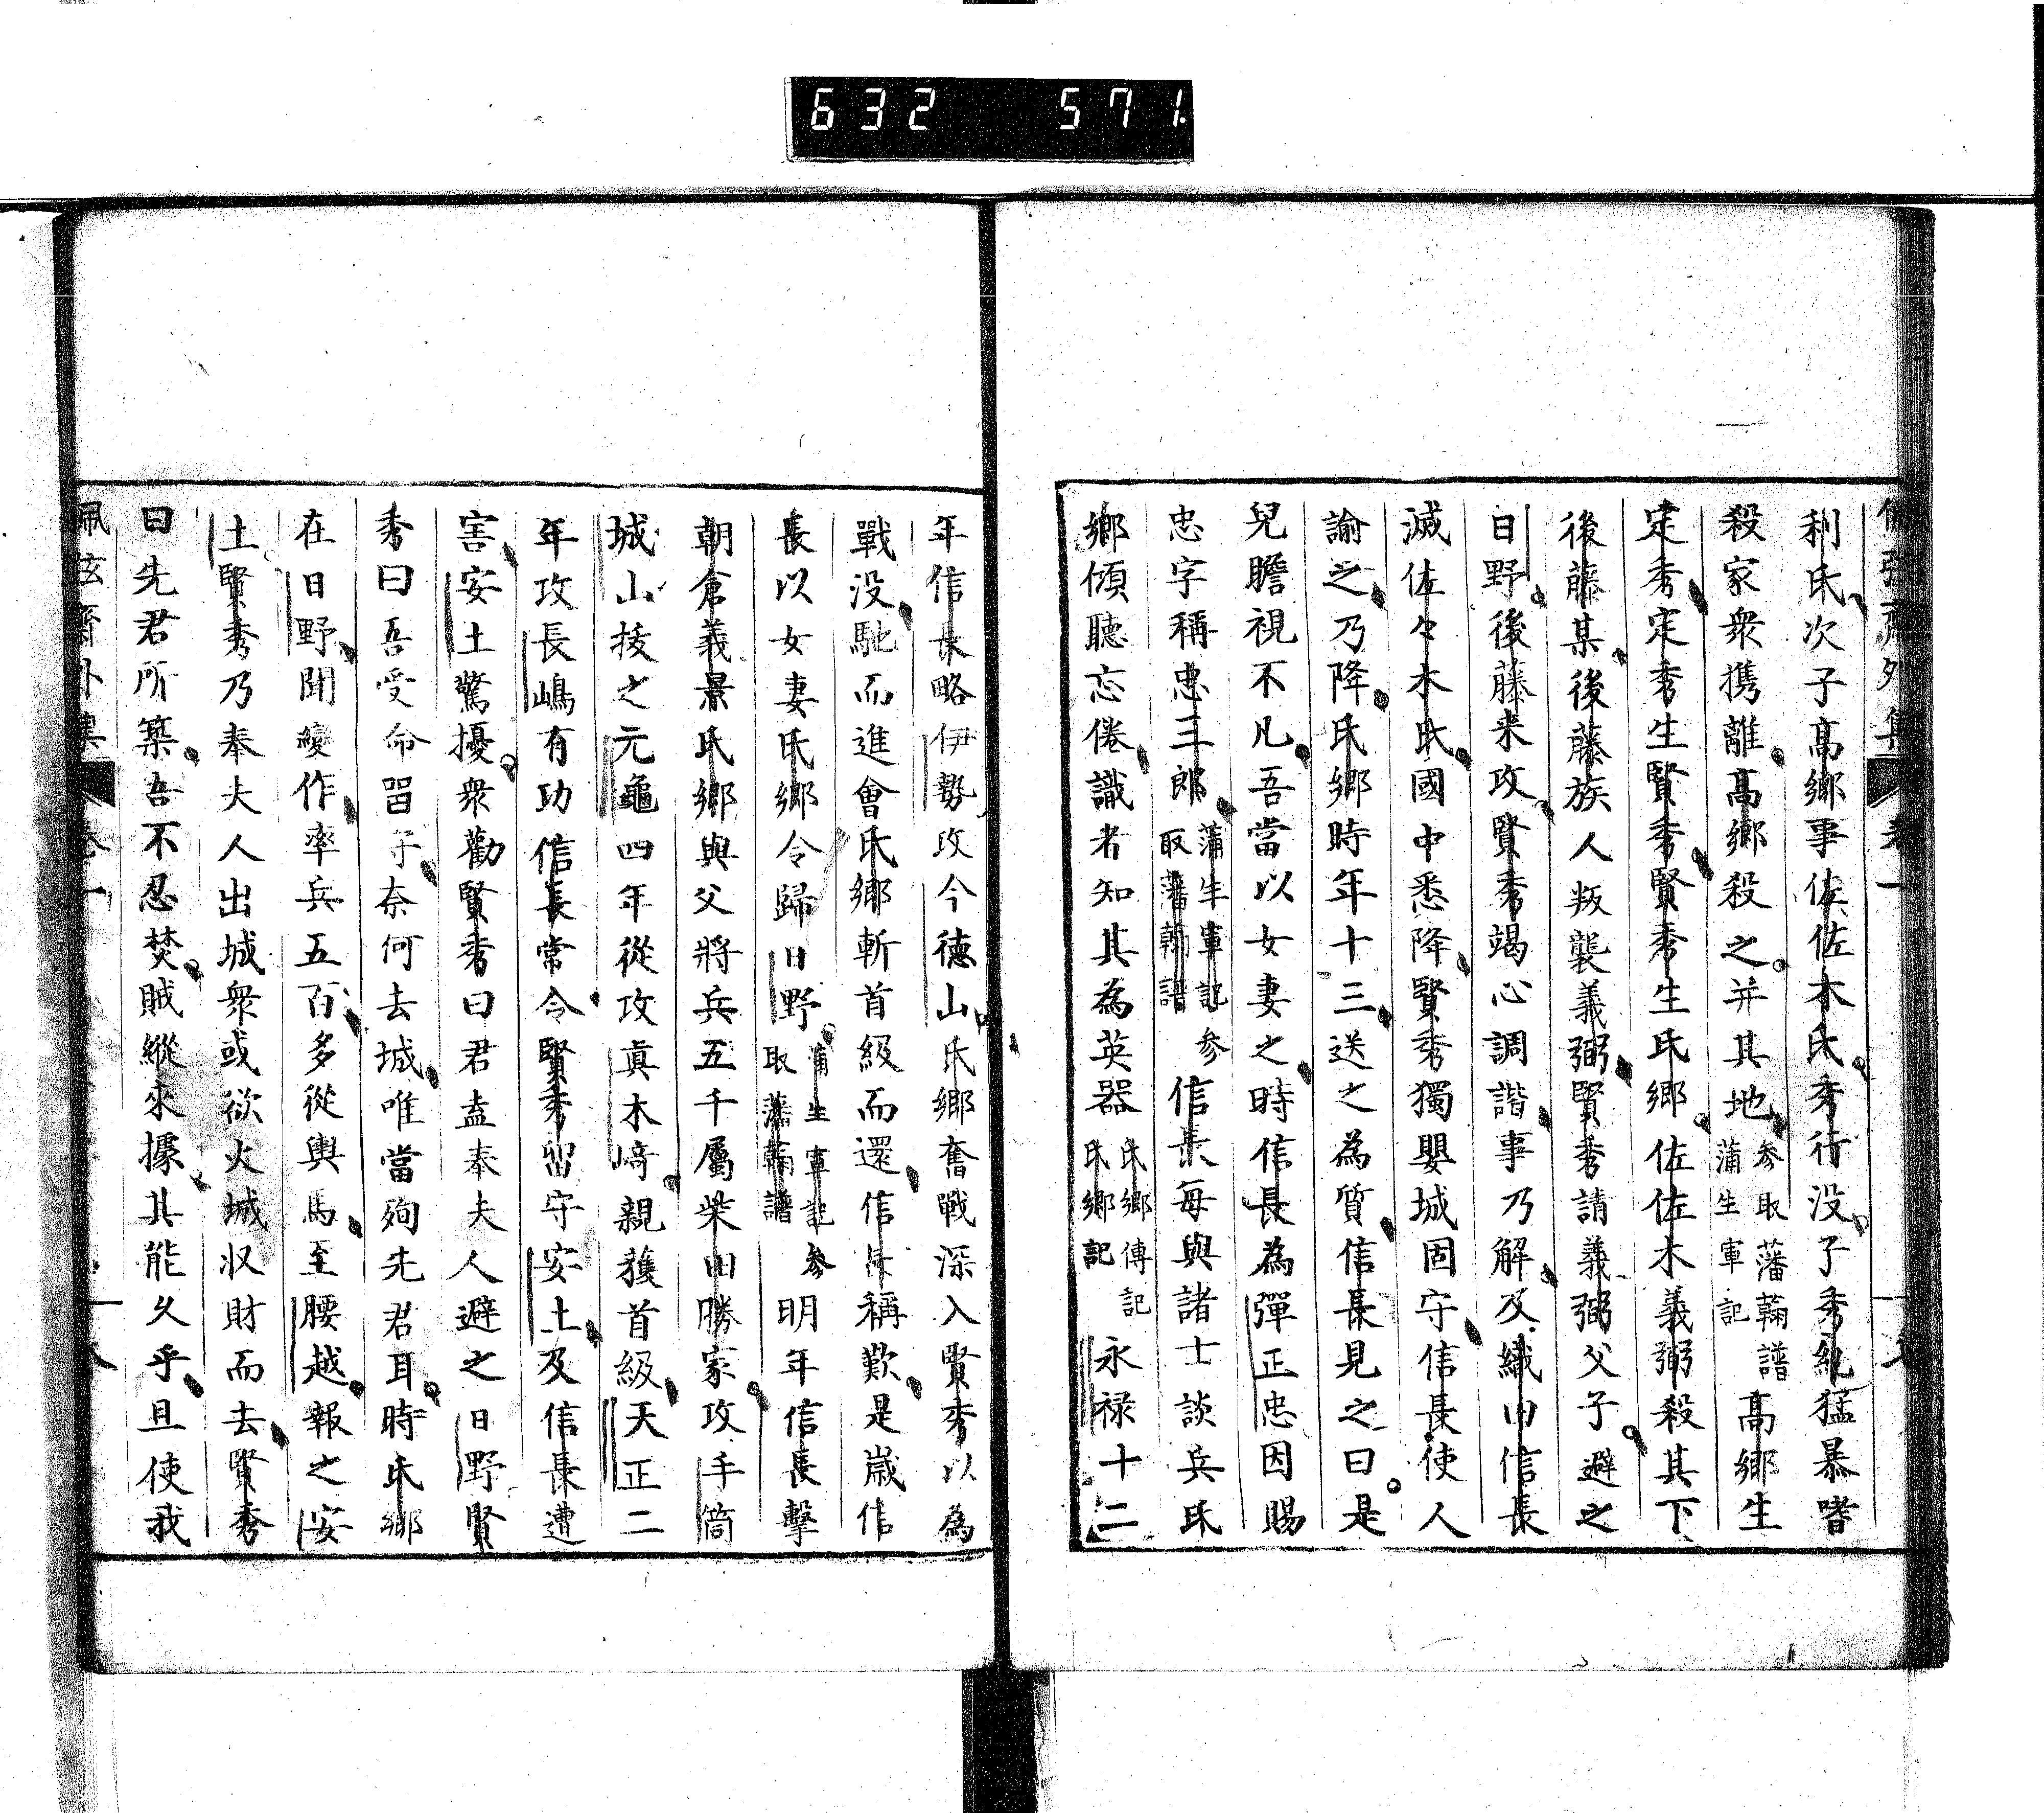 632 571
利氏次子高郷事佐佐木氏秀行没子秀紀猛暴嗜
殺家衆携離高郷殺之并其地参取藩翰譜蒲生軍記高郷生
定秀定秀生賢秀賢秀生氏郷佐佐木義弼殺其下
後藤某後藤族人叛襲義弼賢秀請義弼父子避之
日野後藤来攻賢秀竭心調諧事乃解及織田信長
滅佐々木氏國中悉降賢秀獨嬰城固守信長使人
諭之乃降氏郷時年十三送之為質信長見之曰是
兒瞻視不凡吾當以女妻之時信長為彈正忠因賜
忠字稱忠三郎蒲生軍記参取藩翰譜信長毎與諸士談兵氏
郷傾聽忘倦識者知其為英器氏郷傳記氏郷記永禄十二
年信長略伊勢攻今徳山氏郷奮戰深入賢秀以為
戰没馳而進會氏郷斬首級而還信長稱歎是歳信
長以女妻氏郷令歸日野蒲生軍記参取藩翰譜明年信長擊
朝倉義景氏郷與父將兵五千屬柴田勝家攻手筒
城山拔之元龜四年從攻眞木﨑親獲首級天正二
年攻長嶋有功信長常令賢秀留守安土及信長遭
害安土驚擾衆勸賢秀曰君盍奉夫人避之日野賢
秀曰吾受命畱守奈何去城唯當殉先君耳時氏郷
在日野聞變作率兵五百多從輿馬至腰越報之安
土賢秀乃奉夫人出城衆或欲火城収財而去賢秀
曰先君所築吾不忍焚賊縱來據其能久乎且使我
佩弦齋外集 卷一